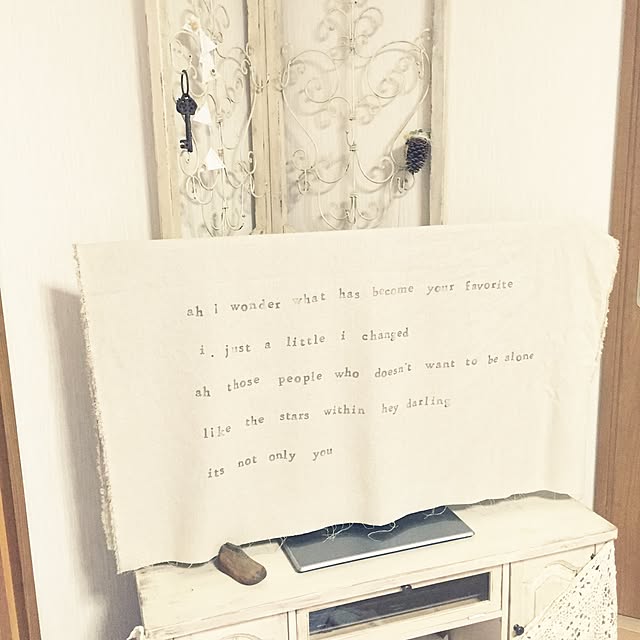 ah I wonder what has become your favorite
i. just a little i changed
ah those people who doesn't want to be alone
like the stars within hey darling
its not only you